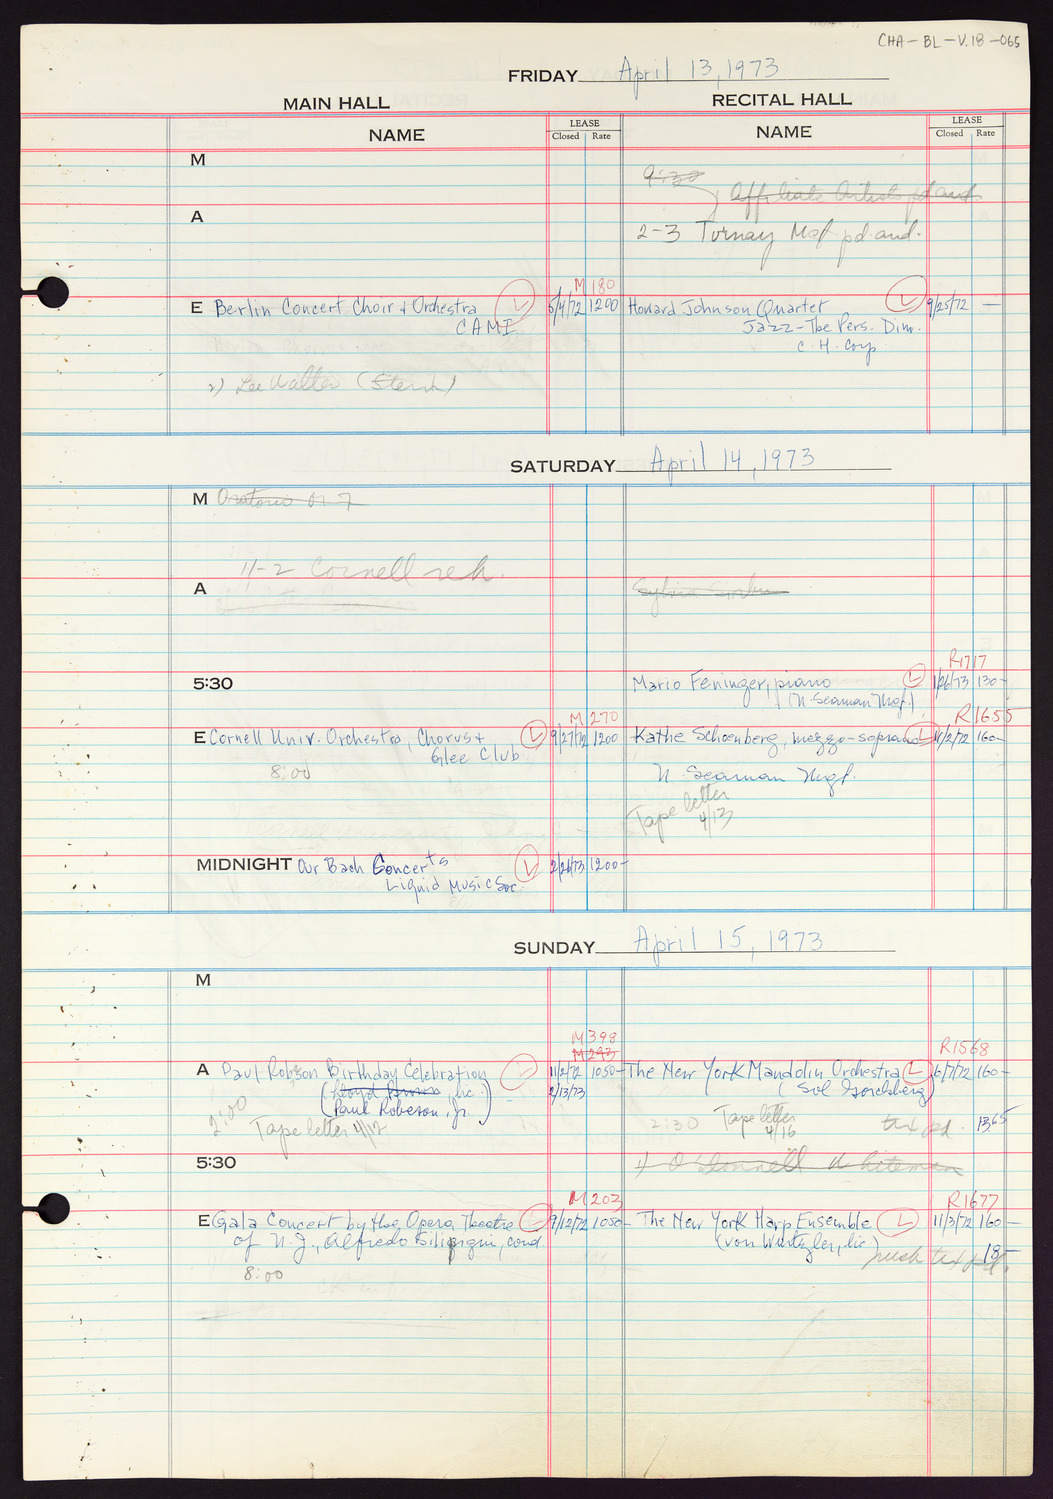 CHA-BL-V.18-065
FRIDAY April 13, 1973
MAIN HALL
RECITAL HALL
NAME
LEASE
Closed Rate
NAME
LEASE
Closed Rate
M
9:30
Affiliate Artists pd aud
A
2-3 Turnay Mgt pd. aud.
M 180
E Berlin Concert Choir + Orchestra L 5/4/72 1200 Howard Johnson Quartet L 9/25/72 —
CAMI
Jazz-The Pers. Dim.
C.H. Corp
2) Lee Walter
SATURDAY April 14, 1973
M Oratorio
11-2 Cornell reh.
A
Sylvia
R1717
5:30
Mario Feninger, piano L 1/26/73 130-
(N. Seaman Mgt.)
M 270
R1655
E Cornell Univ. Orchestra, Chorus + L 9/27/72 1200 Kathe Schoenberg, mezzo-soprano L 11/2/72 160-
Glee Club
8:00
N. Seaman Mgt.
Tape letter
4/13
MIDNIGHT Our Bach Concerts L 2/26/73 1200-
Liquid Music Soc.
SUNDAY April 15, 1973
M
M398
M293
R1568
A Paul Robson Birthday Celebration L 11/2/72 1050- The New York Mandolin Orchestra L 6/7/72 160-
(Lloyd Brown, lic.) 2/13/73
(Sol Goichberg)
Paul Robeson, Jr.)
2:00
Tape letter 4/12
2:30 Tape letter
4/16
tax pd. 13.65
5:30
1) O'Donnell Whiteman
M203
R1677
E Gala Concert by the Opera Theatre L 9/12/72 1050- The New York Harp Ensemble L 11/3/72 160-
of N.J., Alfredo Silipigni, cond.
(von Würtzler, lic.)
8:00
tax pd. 18-